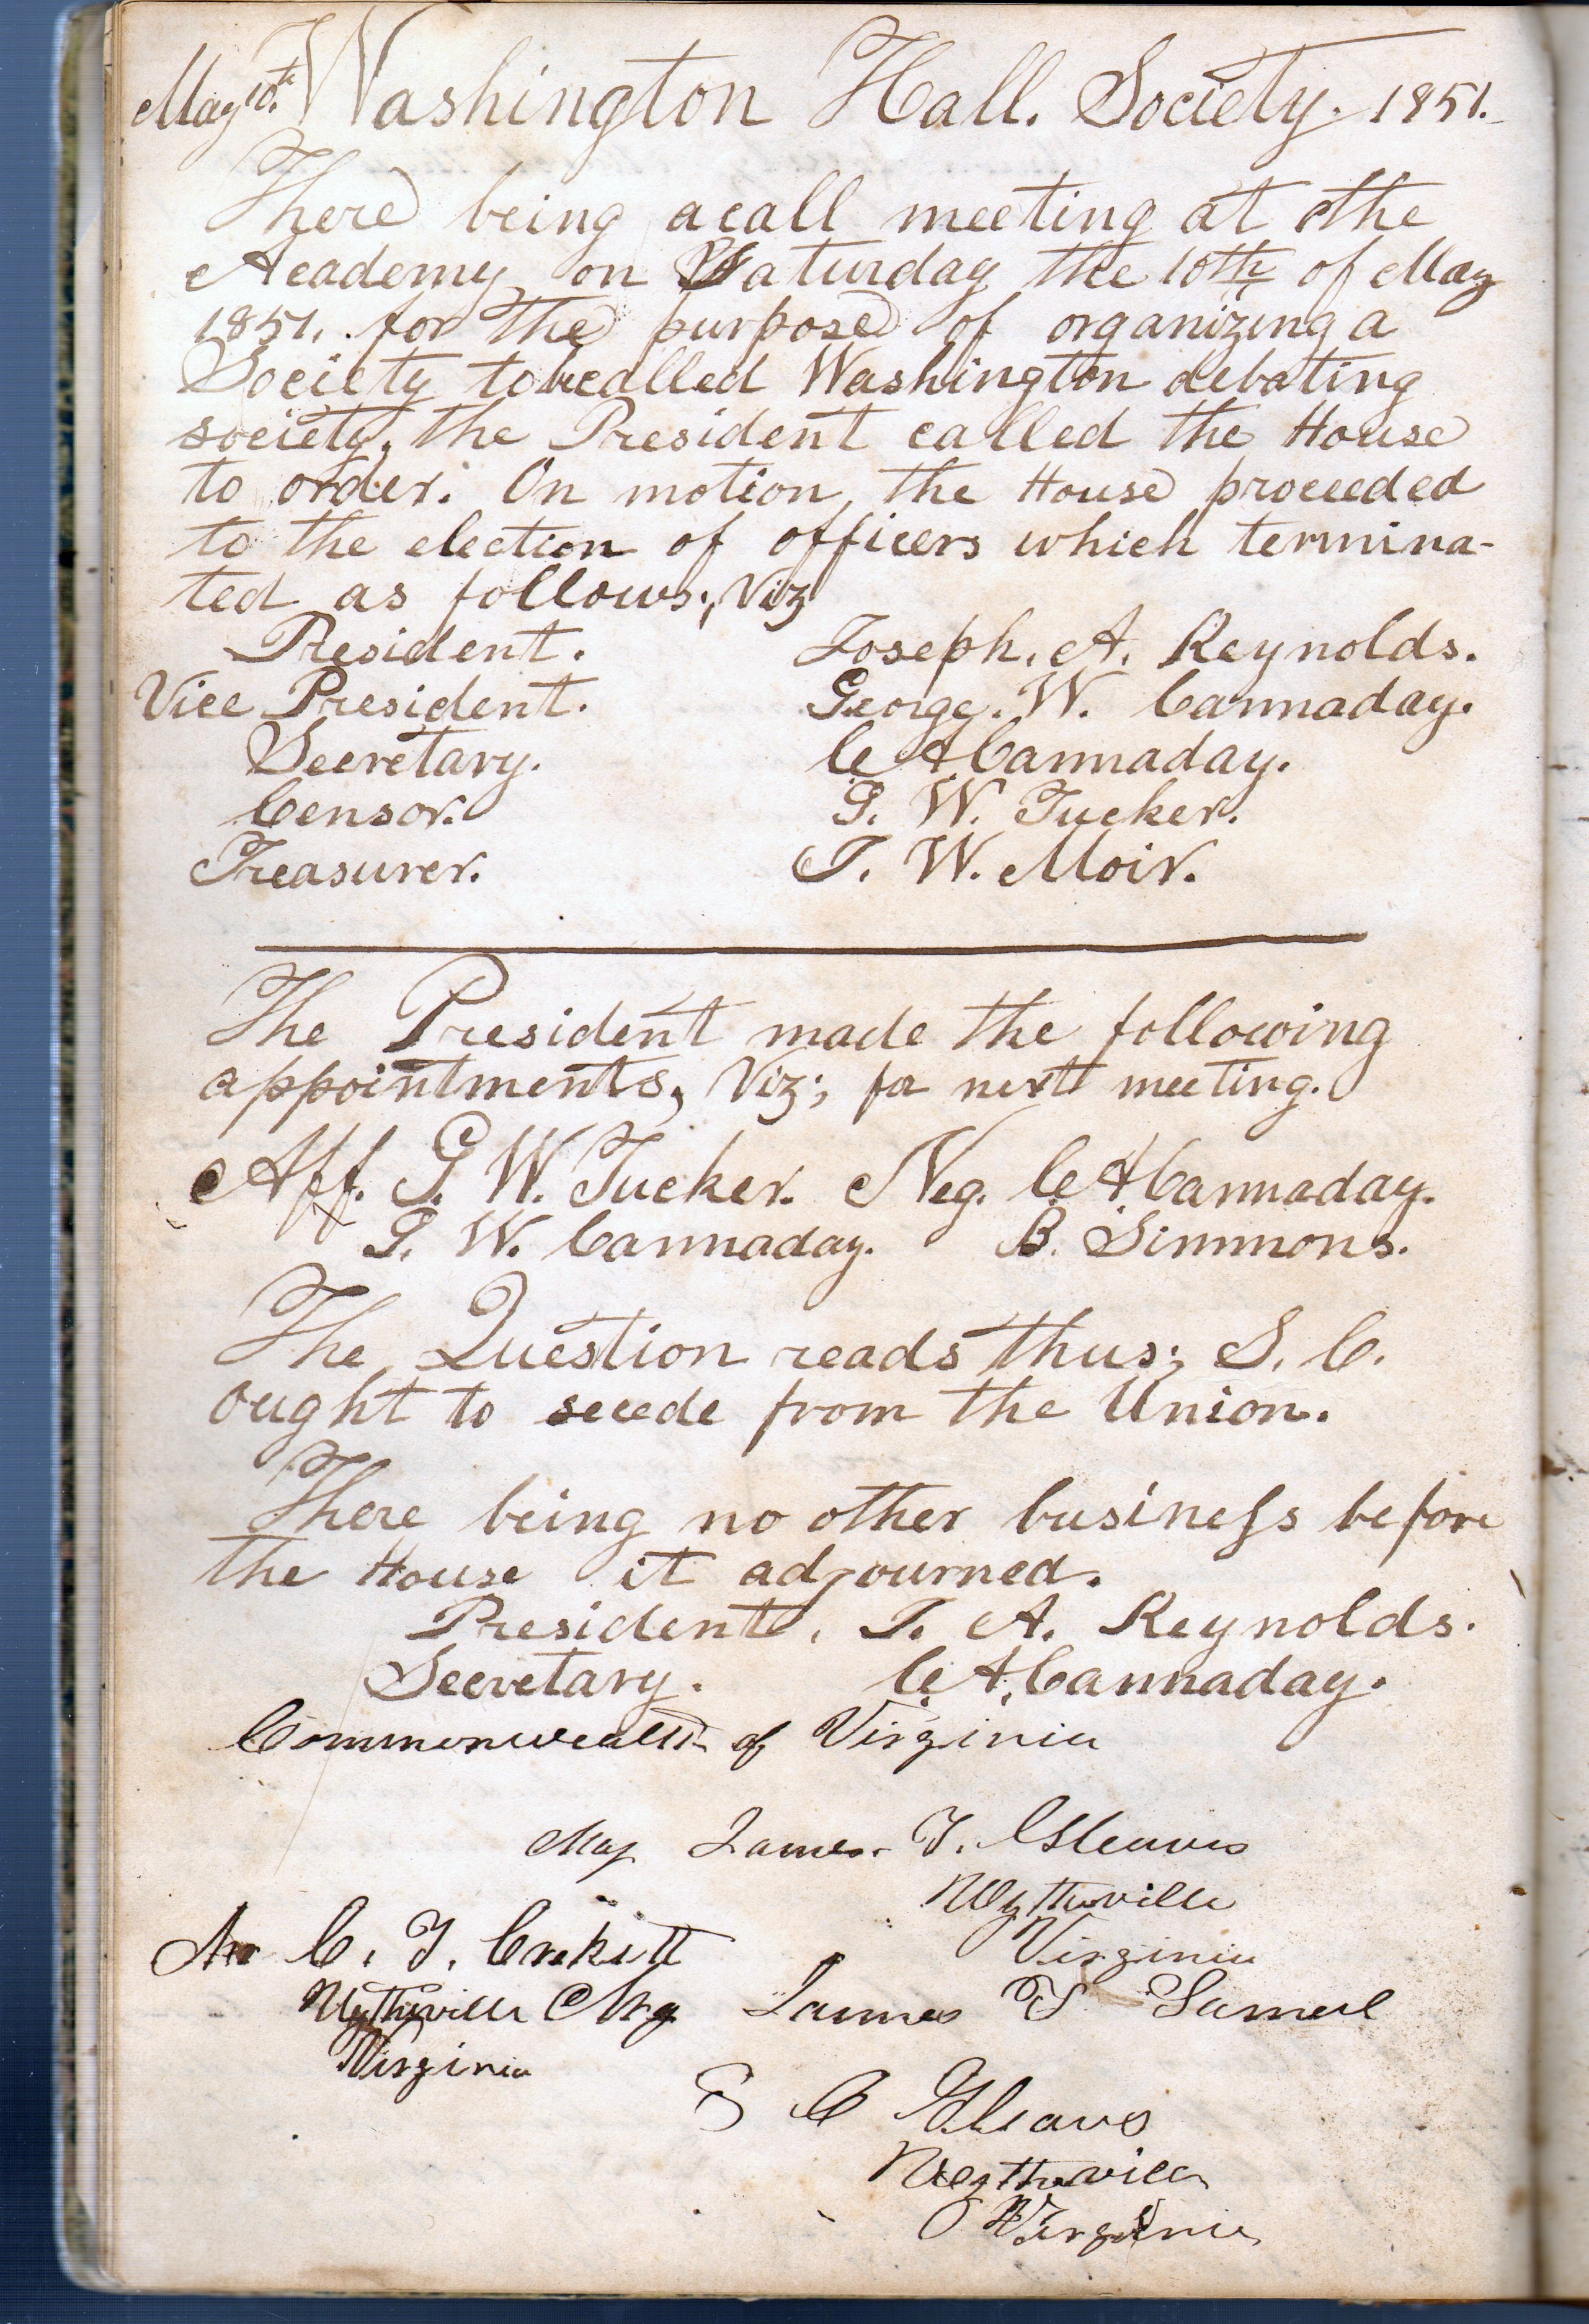 May 10th. Washington Hall. Society. 1851.
There being a call meeting at the
Academy, on Saturday the 10th of May
1851. for the purpose of organizing a
Society to be called Washington debating
society, the President called the House
to order. On motion, the House proceeded
to the election of officers which termina-
ted as follows; Viz
President. Joseph. A. Reynolds.
Vice President. George. W. Cannaday.
Secretary. C. A. Cannaday.
Censor. G. W. Tucker.
Treasurer. J. W. Moir.
The President made the following
appointments, Viz; for next meeting.
Aff. G. W. Tucker. Neg. C. A. Cannaday.
G. W. Cannaday. B. Simmons.
The Question reads thus; S. C.
ought to secede from the Union.
There being no other business before
the House it adjourned.
President, J. A. Reynolds.
Secretary. C. A. Cannaday.
Commonwealth of Virginia
May James T. Gleaves
Wytheville
Virginia
C. T. Crokett
Wytheville
Virginia
James T
S C Gleaves
Wytheville
Virginia